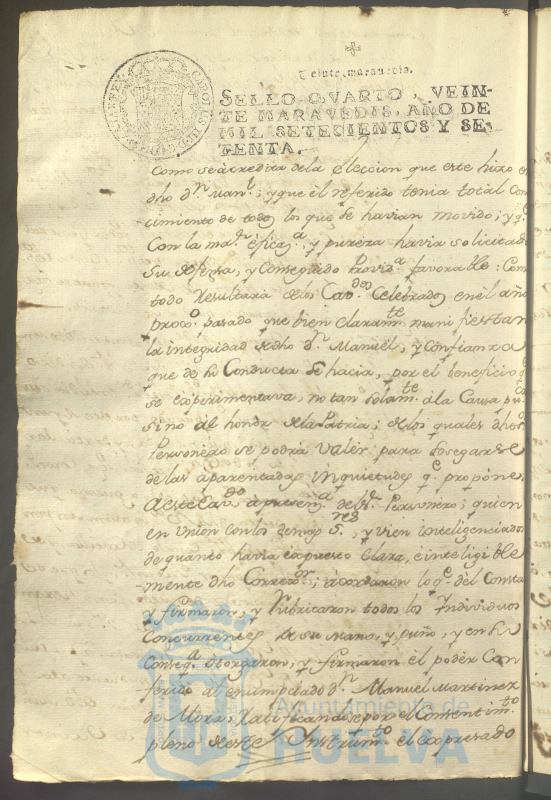 Teinte, marauedis.
SELLO QVARTO, VEIN-
TE MARAVEDIS, AÑO DE
MIL SETECIENTOS Y SE-
TENTA.
Como se acredita dela Eleccion que este hizo en
dho Dn. Manl.; y que el referido tenia total Cono
cimiento de todos los que se havian movido; y qe.
Con la mas eficaz, y pureza havia solicitado
su defensa, y Conseguido Provida. favorable: Como
todo Resultará delos Cavdos. Celebrados en el año
proxo. pasado que bien claramte. manifiestan
la integridad de dho Dn. Manuel, y Confianza
que de su Conducta se hacia, por el beneficio qe.
se experimentava, no tan solamte. á la Causa pu
sino al honor dela Patria; delos quales dho
Personero se podrá valer para sosegarse
de las aparentadas inquietudes qe. propone
á este Cavdo. á presena. de dho Personero; quien
en union con los demas Sres., y vien inteligenciados
de quanto havia expuesto Clara, é inteligible
mente dho Corregor.; acordaron lo qe. del Consta
y firmaron, y Rubricaron todos los Individuos
Concurrentes de su mano, y puño, y en su
Conseqa. otorgaron, y firmaron el poder Con
ferido al enunciado Dn. Manuel Martinez
de Mora; Ratificandose por el Consentimto.
pleno deste Instrumto. el expresado
Ayuntamiento de
HUELVA